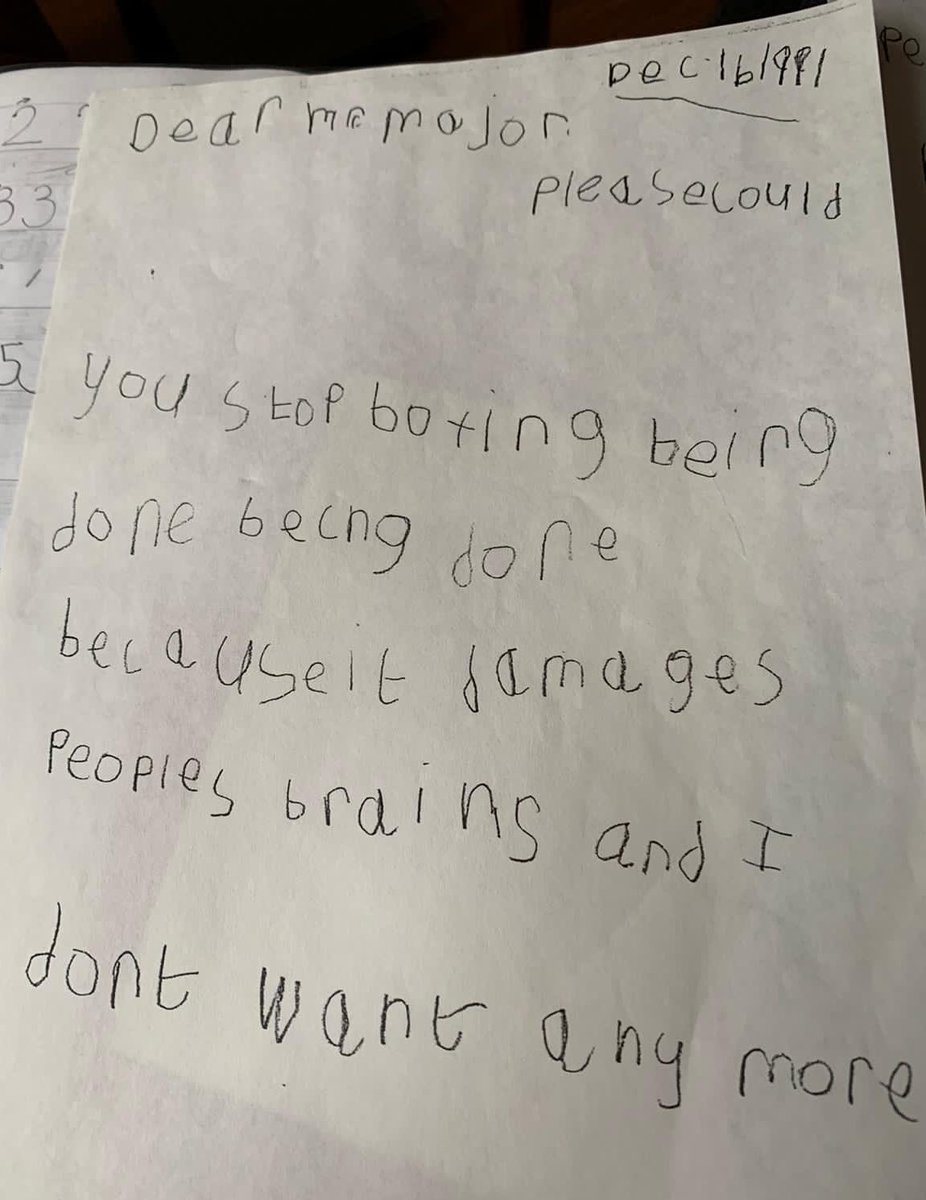 Dec.16/1991
Dear mr major
pleasecould
you stop boxing being
done becng done
becauseit damages
Peoples brains and I
dont want any more
2
33
5
Pe